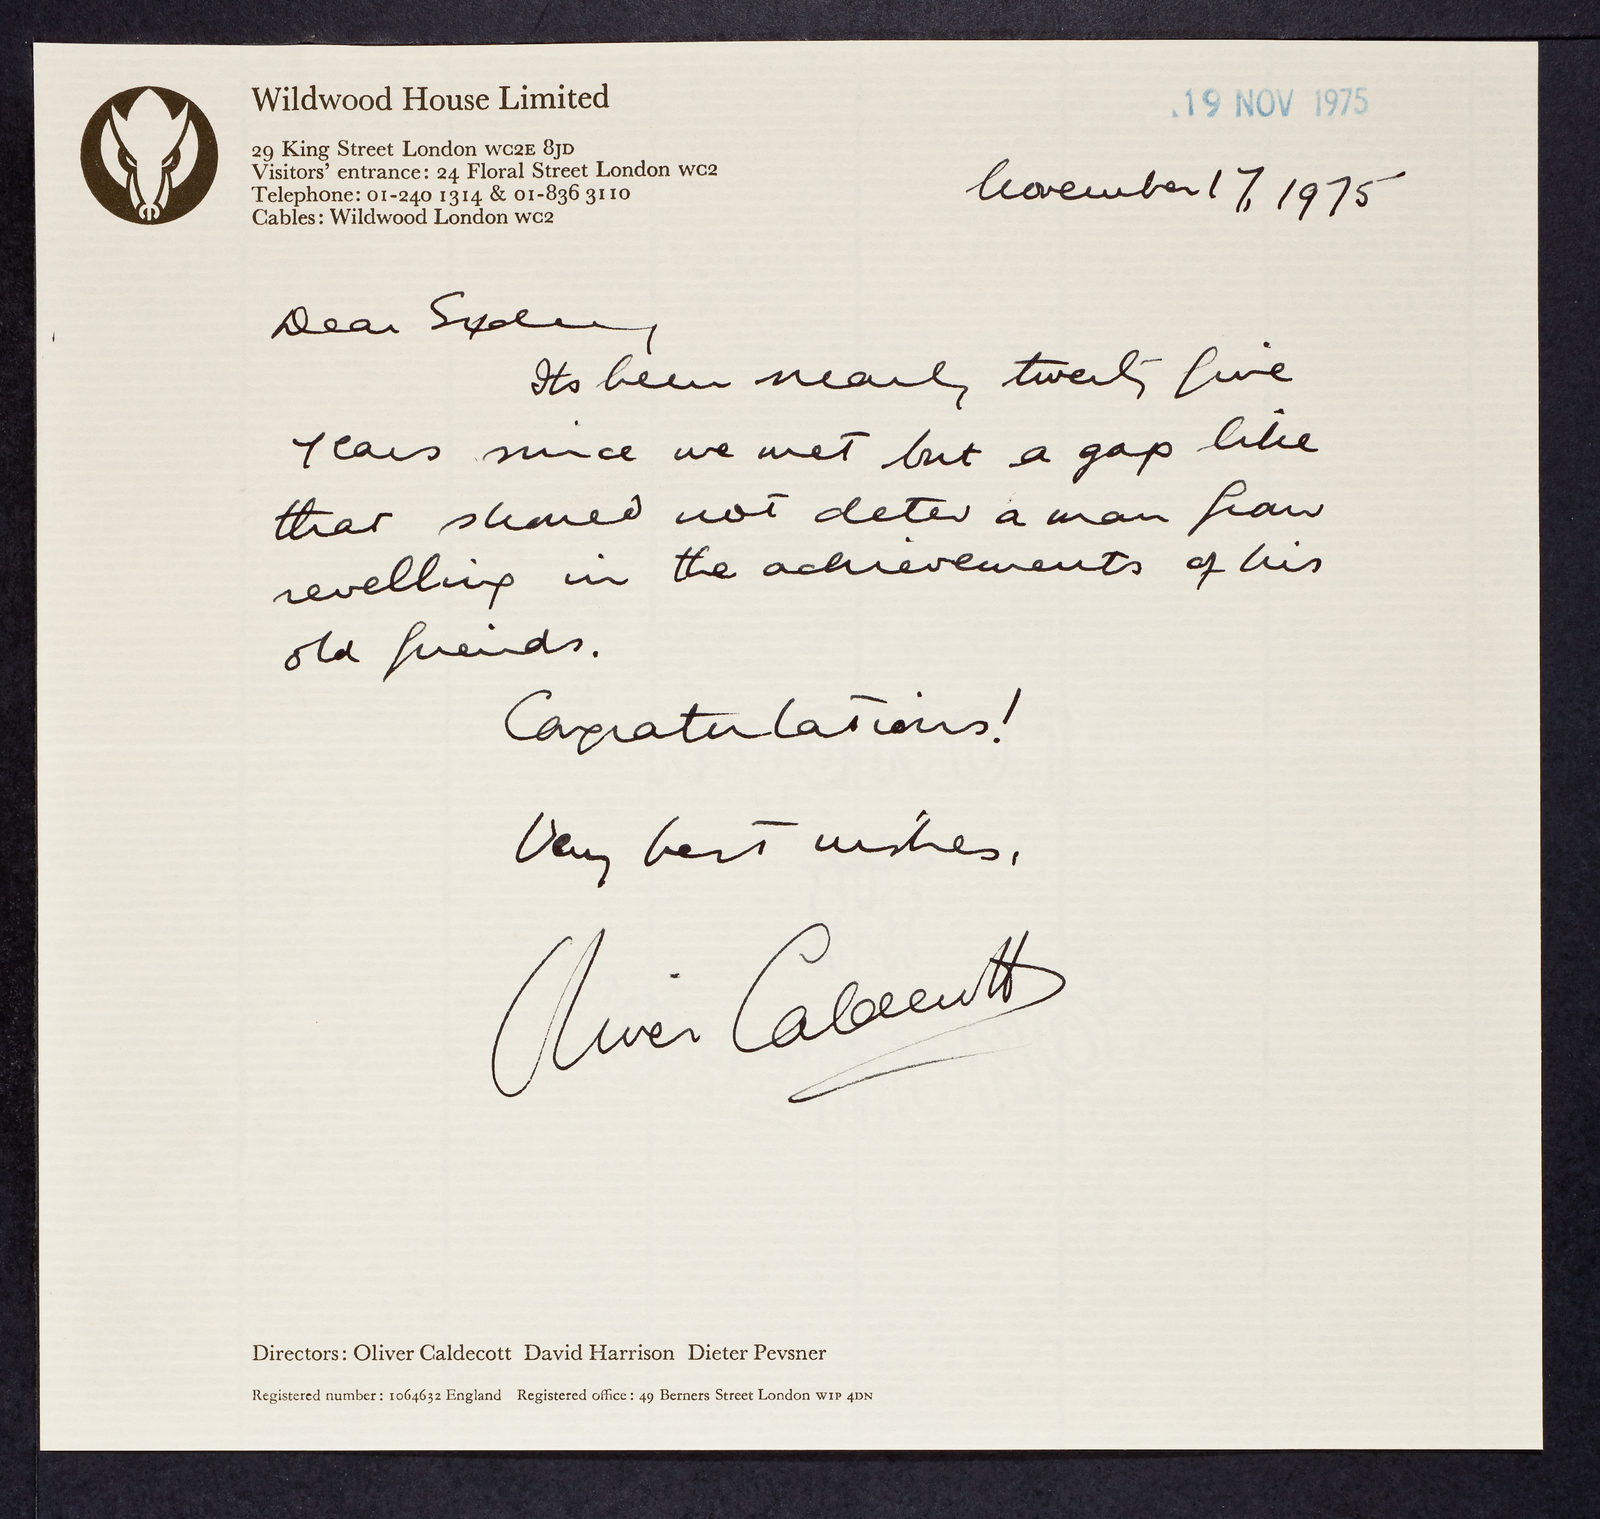 Wildwood House Limited
29 King Street London WC2E 8JD
Visitors' entrance: 24 Floral Street London WC2
Telephone: 01-240 1314 & 01-836 3110
Cables: Wildwood London WC2
19 NOV 1975
November 17, 1975
Dear Sydney,
Its been nearly twenty five
years since we met but a gap like
that should not deter a man from
revelling in the achievements of his
old friends.
Congratulations!
Very best wishes,
Oliver Caldecott
Directors: Oliver Caldecott David Harrison Dieter Pevsner
Registered number: 1064632 England Registered office: 49 Berners Street London W1P 4DN